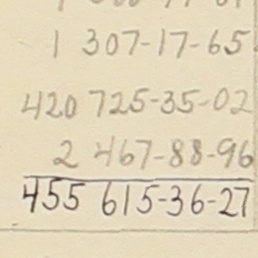 1 307-17-65
420 725-35-02
2 467-88-96
455 615-36-27